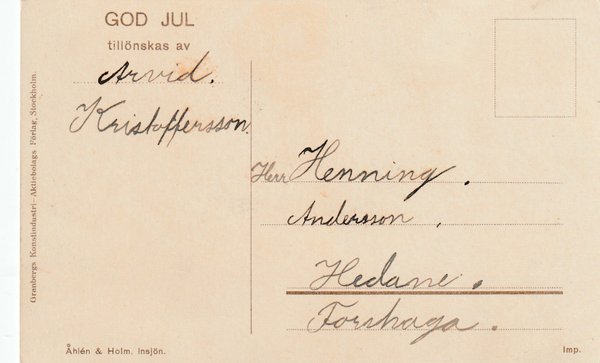 GOD JUL
tillönskas av
Arvid.
Kristoffersson.
Herr Henning.
Andersson.
Hedane.
Forshaga.
Granbergs Konstindustri-Aktiebolags Förlag, Stockholm.
Åhlén & Holm, Insjön.
Imp.